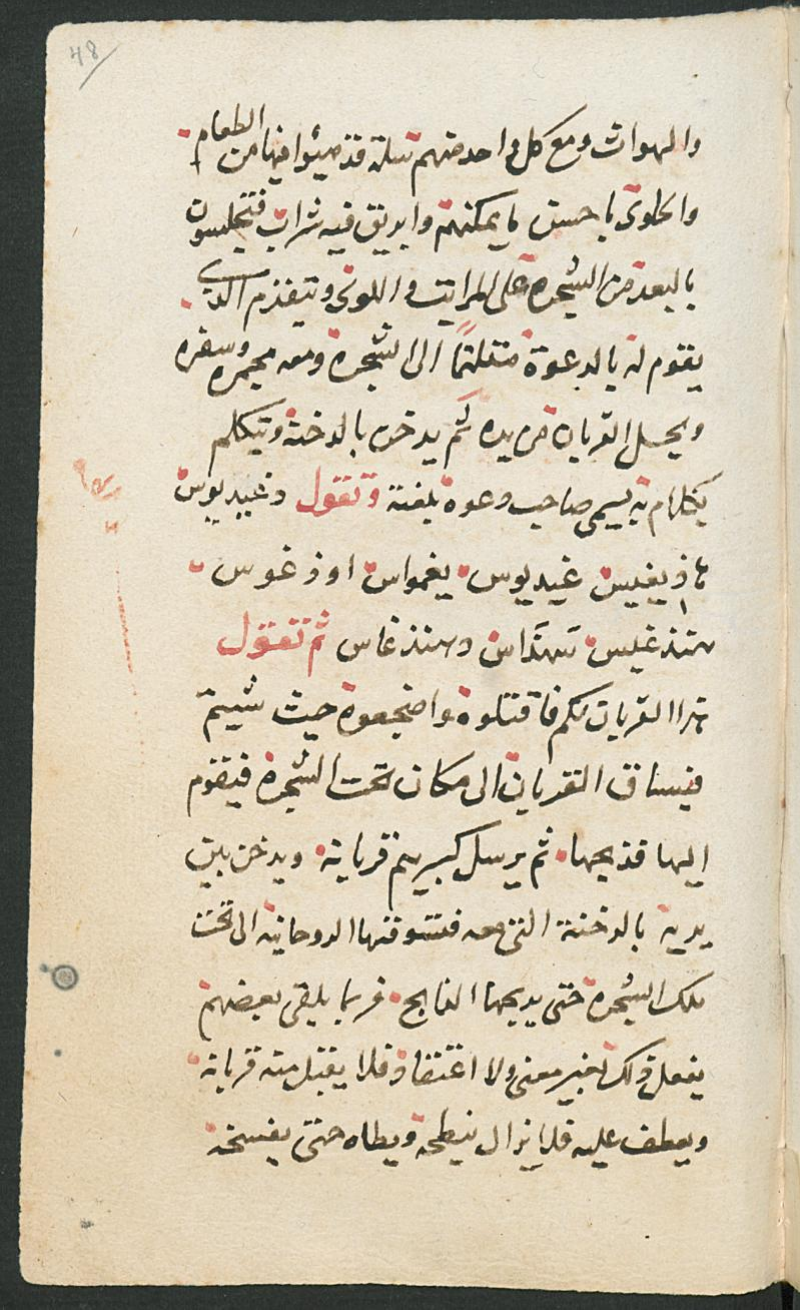 48
والهوات ومع كل واحد منهم سلة قد هيئوا فيها من الطعام
والحلوى باحسن ما يمكنهم وابريق فيه شراب فتجلسون
بالبعد من الشجرة على المراتب و اللونى وتتقدم الذى
يقوم له بالدعوة متقلنًا الى الشجرة ومعه مجمره وسفره
ويحمل القربان من يده ثم يدخن بالدخنة ويتكلم
بكلام به يسمى صاحب دعوة بلغته وتقول دغيديوس
ها ذيغيس غيديوس يغمواس اوذغوس
هندغيس سهداس وهندغاس ثم تقول
هذا القربان لكم فاقتلوه واضجعوه حيث شيتم
فيساق القربان الى مكان تحت الشجرة فيقوم
اليها فذبحها ثم يرسل كبيرهم قربانه ويدخن بين
يديه بالدخنة التى معه فتسوقها الروحانيه الى تحت
تلك الشجرة حتى يذبحها الذابح فربما يلقى بعضهم
يفعل ذلك لغير معنى ولا اعتقاد فلا يقبل منه قربانه
ويعطف عليه فلا يزال ينطحه ويطاه حتى يفسخه